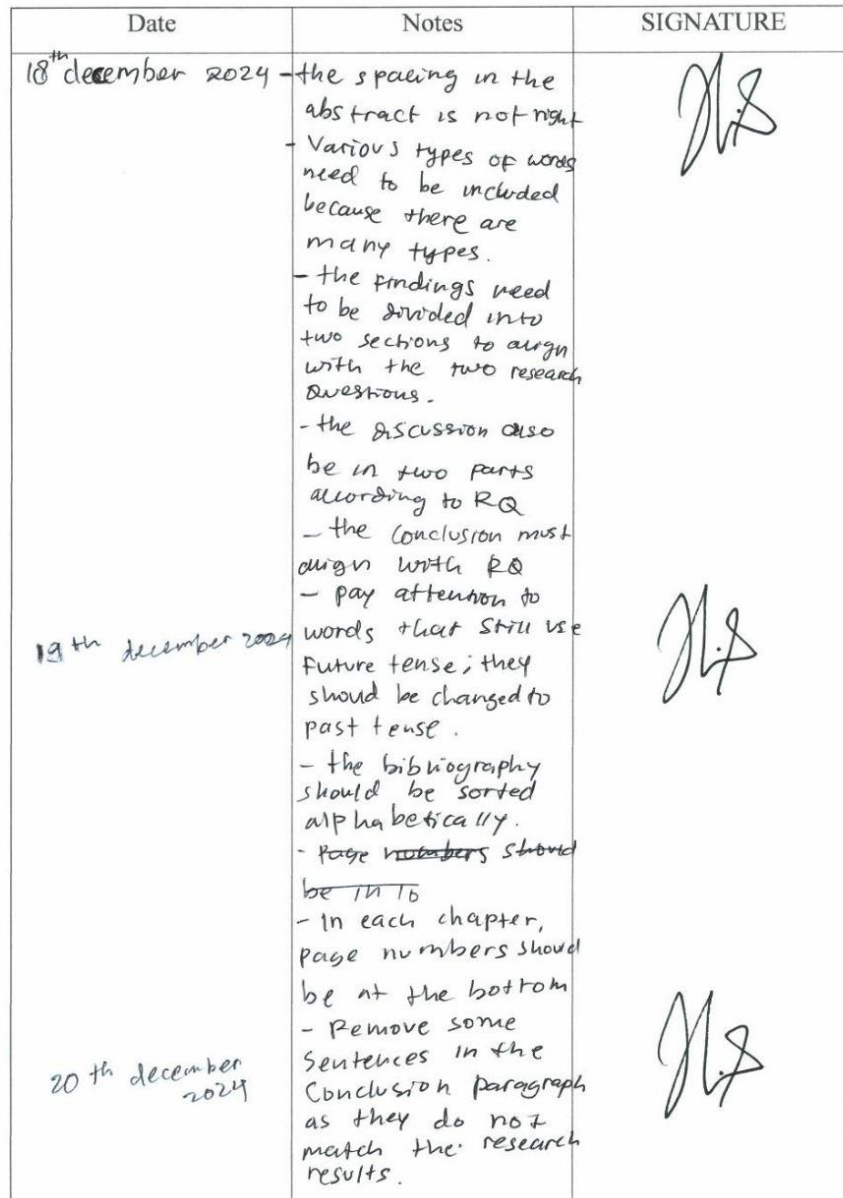 Date Notes SIGNATURE
18th december 2024 - the spacing in the
abstract is not right
- Various types of words
need to be included
because there are
many types.
- the findings need
to be divided into
two sections to align
with the two research
Questions.
- the discussion also
be in two parts
according to RQ
- the conclusion must
align with RQ
- pay attention to
19th december 2024 words that still use
Future tense; they
should be changed to
past tense.
- the bibliography
should be sorted
alphabetically.
- Page numbers should
be in to
- In each chapter,
page numbers should
be at the bottom
- Remove some
20th december sentences in the
2024 Conclusion paragraph
as they do not
match the research
results.